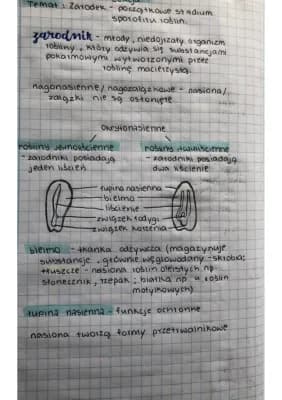 Temat: Zarodek - początkowe stadium
sporofitu roślin.
zarodnik - młody, niedojrzały organizm
rośliny, który odżywia się substancjami
pokarmowymi wytworzonymi przez
roślinę macierzystą.
nagonasienne/nagozalążkowe - nasiona/
zalążki nie są osłonięte
okrytonasienne
rośliny jednoliścienne
- zarodniki posiadają
jeden liścień
rośliny dwuliścienne
- zarodniki posiadają
dwa liścienie
łupina nasienna
bielmo
liścienie
związek łodygi
związek korzenia
bielmo - tkanka odżywcza (magazynuje
substancje, głównie węglowodany - skrobia;
tłuszcze - nasiona roślin oleistych np
słonecznik, rzepak; białka np u roślin
motylkowych)
łupina nasienna - funkcje ochronne
nasiona tworzą formy przetrwalnikowe